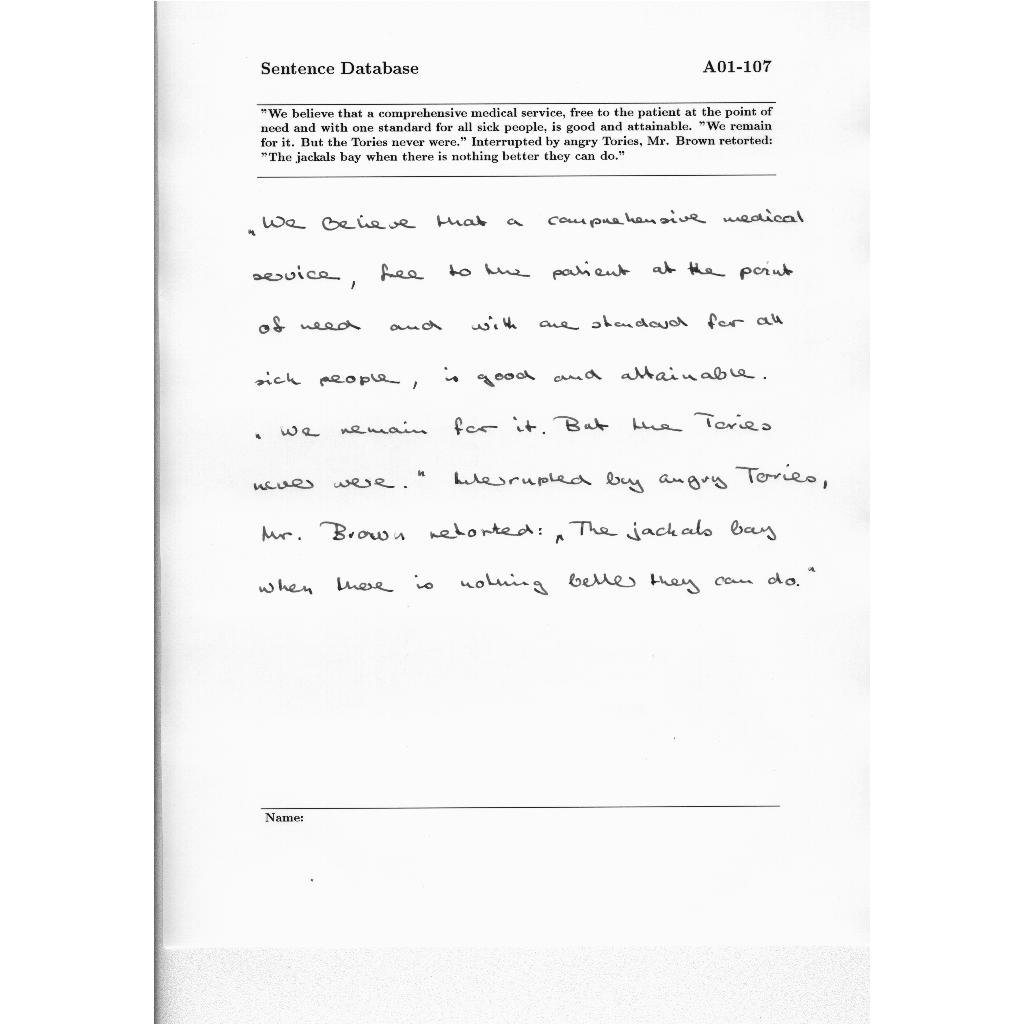 Sentence Database A01-107
"We believe that a comprehensive medical service, free to the patient at the point of
need and with one standard for all sick people, is good and attainable. "We remain
for it. But the Tories never were." Interrupted by angry Tories, Mr. Brown retorted:
"The jackals bay when there is nothing better they can do."
„We believe that a comprehensive medical
service, free to the patient at the point
of need and with one standard for all
sick people, is good and attainable.
„We remain for it. But the Tories
never were." Interrupted by angry Torries,
Mr. Brown retorted: „The jackals bay
when there is nothing better they can do."
Name: